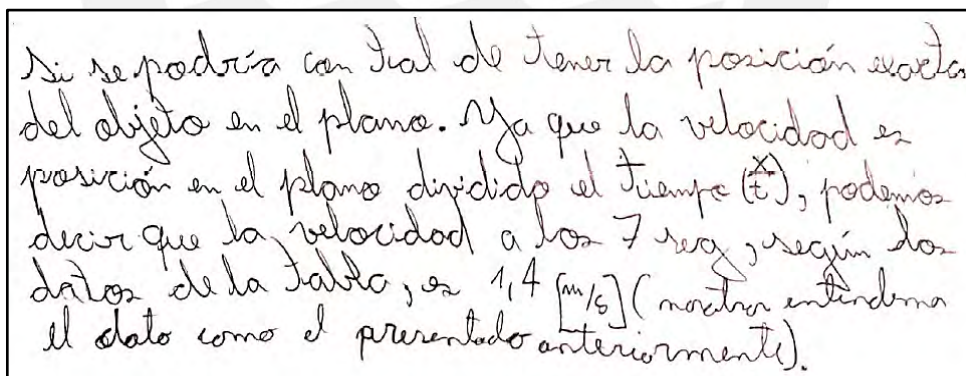 Si se podría con tal de tener la posición exacta
del objeto en el plano. Ya que la velocidad es
posición en el plano dividido el tiempo (x/t), podemos
decir que la velocidad a los 7 seg, según los
datos de la tabla, es 1,4 [m/s] (nosotros entendemos
el dato como el presentado anteriormente).